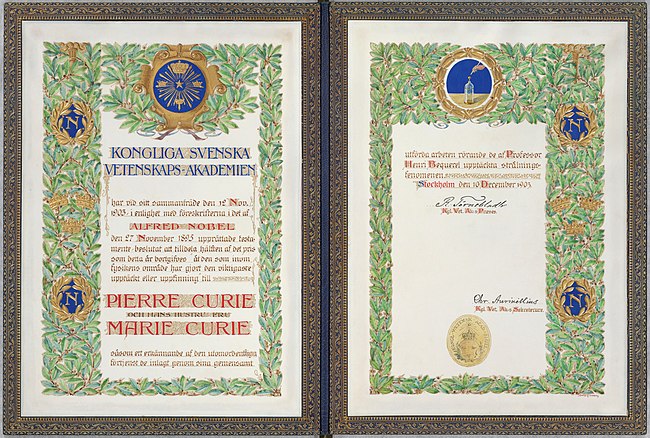 KONGLIGA SVENSKA
VETENSKAPS-AKADEMIEN
har vid sitt sammanträde den 12 Nov.
1903 i enlighet med föreskrifterna i det af
ALFRED NOBEL
den 27 November 1895 upprättade testa-
mente beslutat att tilldela hälften af det pris
som detta år bortgifves åt den som inom
fysikens område har gjort den viktigaste
upptäckt eller uppfinning till
PIERRE CURIE
OCH HANS HUSTRU FRU
MARIE CURIE
såsom ett erkännande af den utomordentliga
förtjenst de inlagt genom sina gemensamt
N
N
utförda arbeten rörande de af Professor
Henri Bequerel upptäckta strålnings-
fenomenen
Stockholm den 10 December 1903.
R. Törnebladh
Kgl. Vet. Ak:s Præses.
Chr. Aurivillius
Kgl. Vet. Ak:s Sekreterare.
N
N